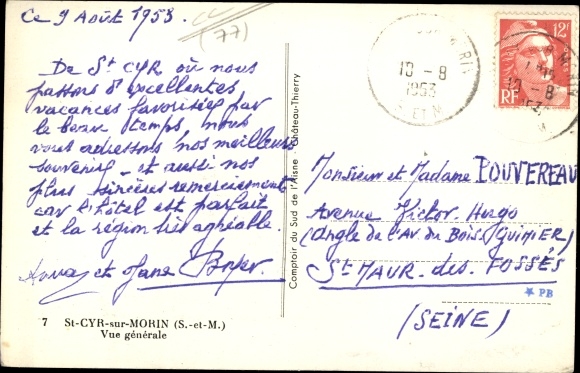 Ce 9 Août 1953.
(77)
De St CYR où nous
passons d'excellentes
vacances favorisées par
le beau temps, nous
vous adressons nos meilleurs
souvenirs et aussi nos
plus sincères remerciements
car l'hôtel est parfait
et la région très agréable.
et Jane
7 St-CYR-sur-MORIN (S.-et-M.)
Vue générale
Comptoir du Sud de l'Aisne Château-Thierry
10-8
1953
12F
RF
Monsieur et Madame POUVEREAU
Avenue Victor-Hugo
(Angle de l'Av. du Bois. GUIMIER)
St MAUR. des. FOSSÉS
* PB
(SEINE)